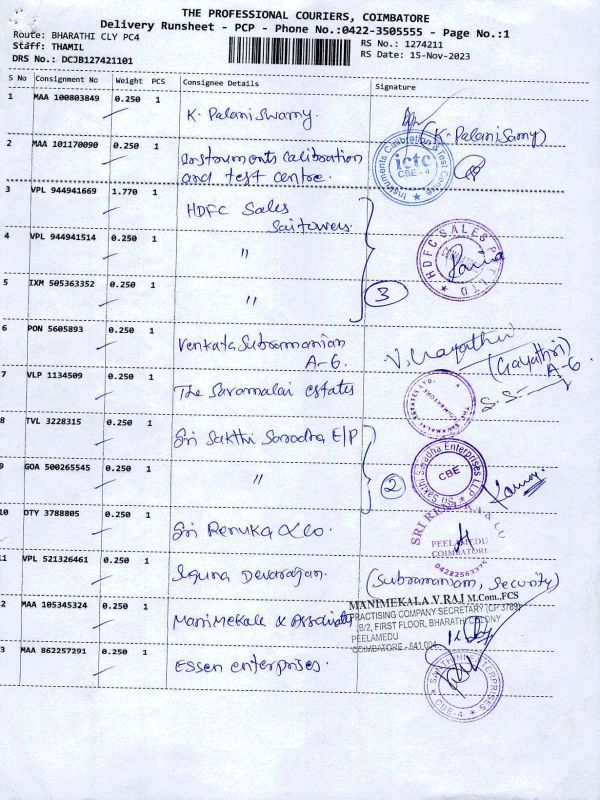 THE PROFESSIONAL COURIERS, COIMBATORE
Delivery Runsheet - PCP - Phone No.:0422-3505555 - Page No.:1
Route: BHARATHI CLY PC4
RS No.: 1274211
Staff: THAMIL
RS Date: 15-Nov-2023
DRS No.: DCJB127421101
S No Consignment No Weight PCS Consignee Details Signature
1 MAA 100803849 0.250 1 K. Palani Swamy. (K. Palani Samy)
2 MAA 101170090 0.250 1 Instruments calibration
and test centre.
Instruments Calibration & Test Centre
ictc
CBE - 4
3 VPL 944941669 1.770 1 HDFC Sales
Sai towers.
4 VPL 944941514 0.250 1 "
HDFC SALES PVT LTD
5 IXM 505363352 0.250 1 "
3
6 PON 5605893 0.250 1 Venkata Subramanian
A-6.
V. Gayathri
(Gayathri)
A-6.
7 VLP 1134509 0.250 1 The Saramalai estates
S.S
8 TVL 3228315 0.250 1 Sri Sakthi Saradha E/P
Sri Sakthi Saradha Enterprises LLP
CBE
9 GOA 500265545 0.250 1 "
2
10 OTY 3788805 0.250 1 Sri Renuka & co.
SRI RENUKA & CO
PEELAMEDU
COIMBATORE
11 VPL 521326461 0.250 1 Devarajan.
(Subramaniam, Security)
2 MAA 105345324 0.250 1 Manimekala & Associates
MANIMEKALA V.RAJ M.Com.,FCS
PRACTISING COMPANY SECRETARY (CP 3789)
FIRST FLOOR, BHARATHI COLONY
PEELAMEDU
COIMBATORE - 641 004.
3 MAA 862257291 0.250 1 Essen enterprises.
ENTERPRISES
CBE-4